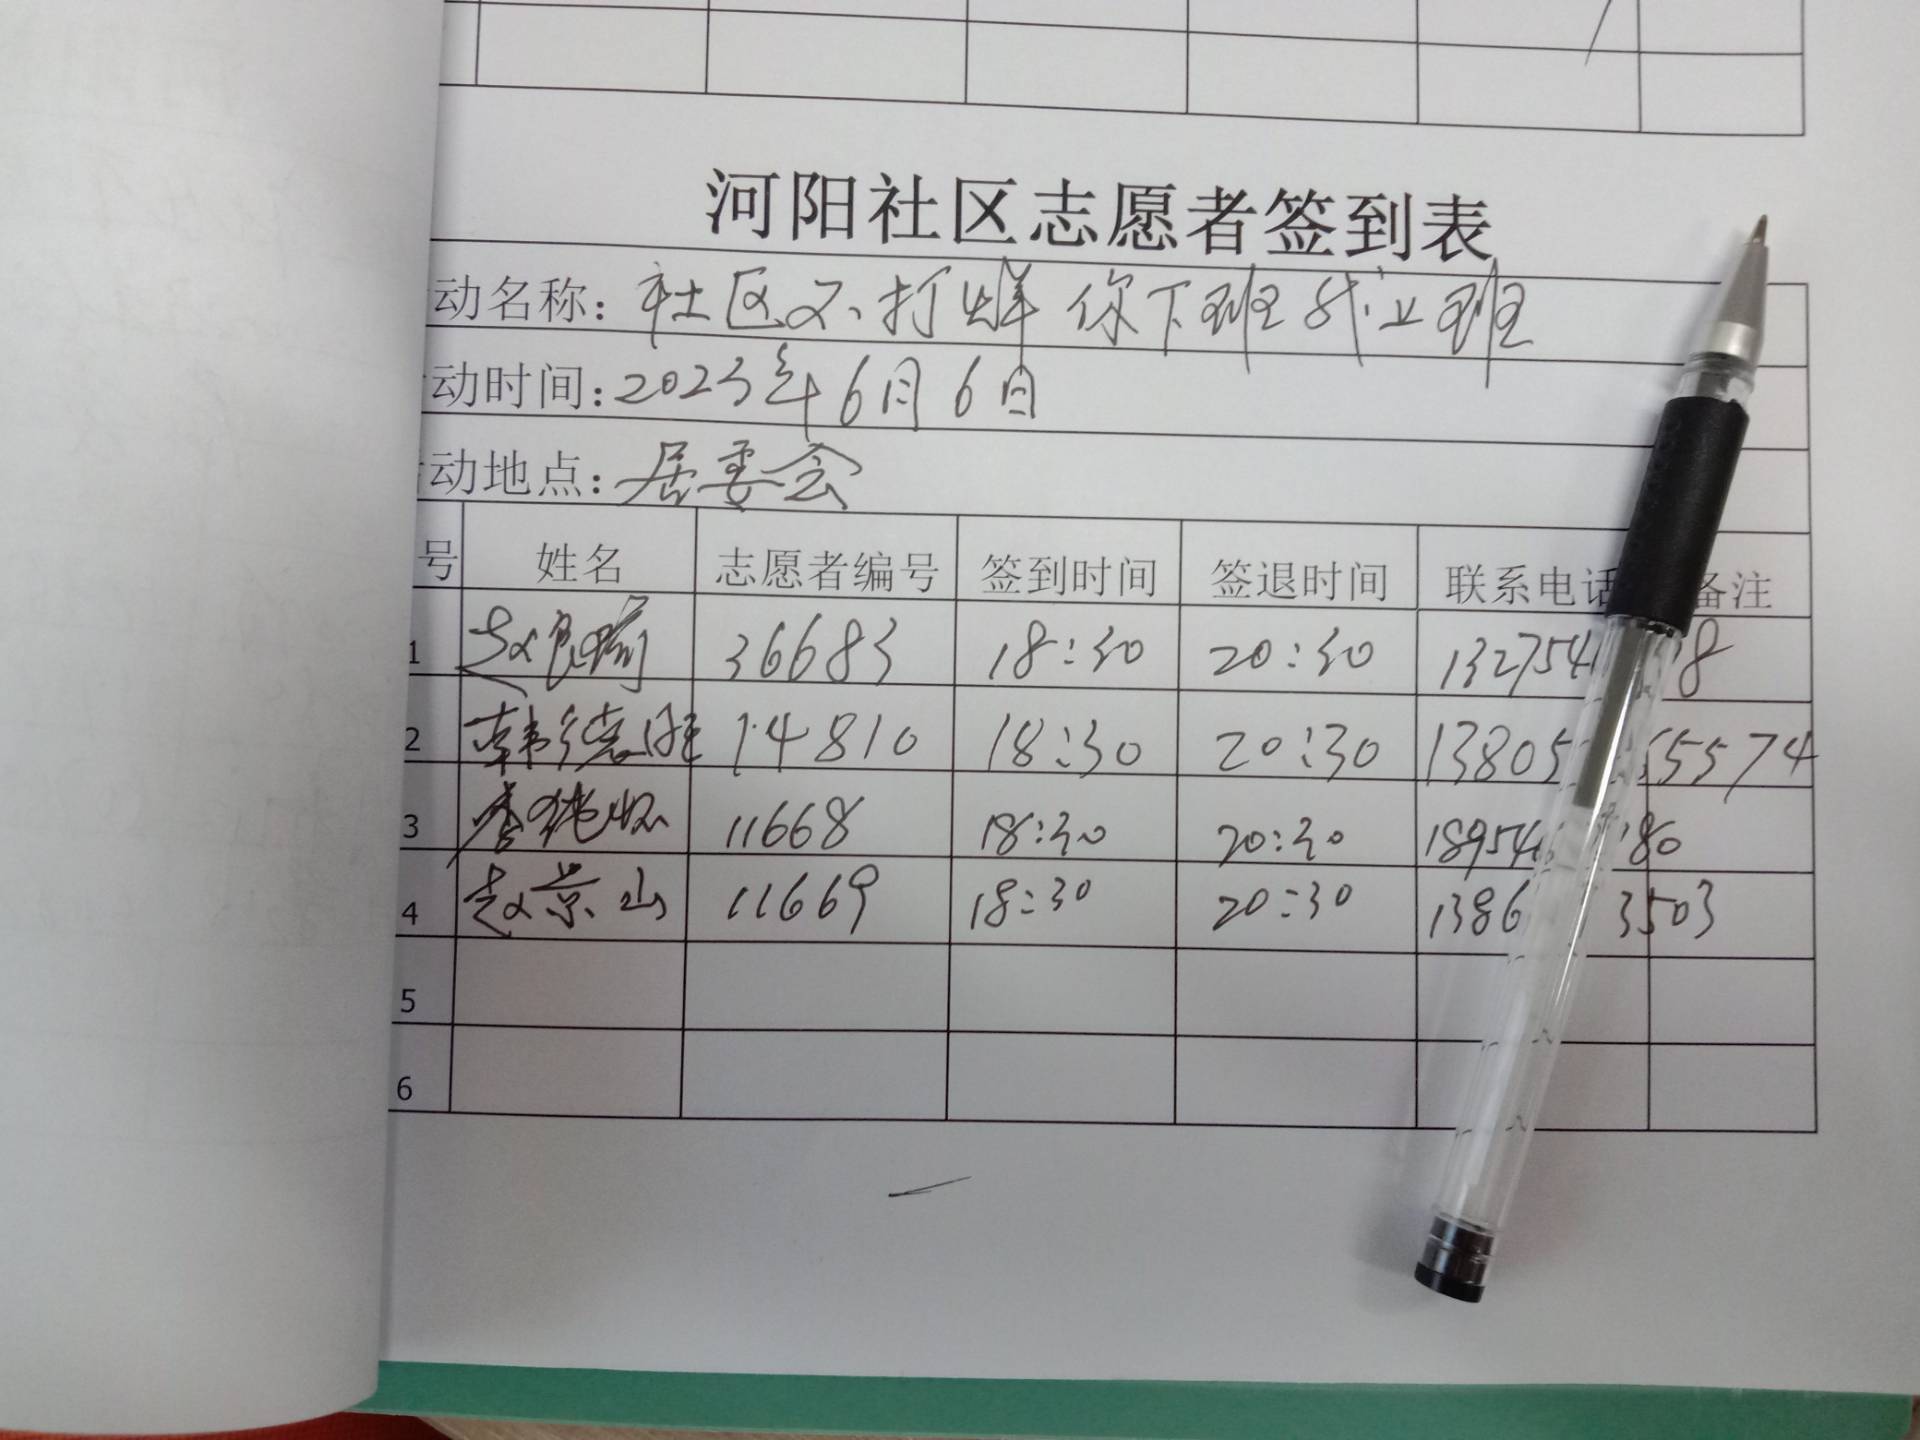 河阳社区志愿者签到表
动名称：社区不打烊 你下班我上班
动时间：2023年6月6日
活动地点：居委会
号 姓名 志愿者编号 签到时间 签退时间 联系电话 备注
1 赵 36683 18:30 20:30 132754 8
2 韩德胜 14810 18:30 20:30 13805 5574
3 李 11668 18:30 20:30 18954 180
4 赵京山 11669 18:30 20:30 1386 3503
5
6